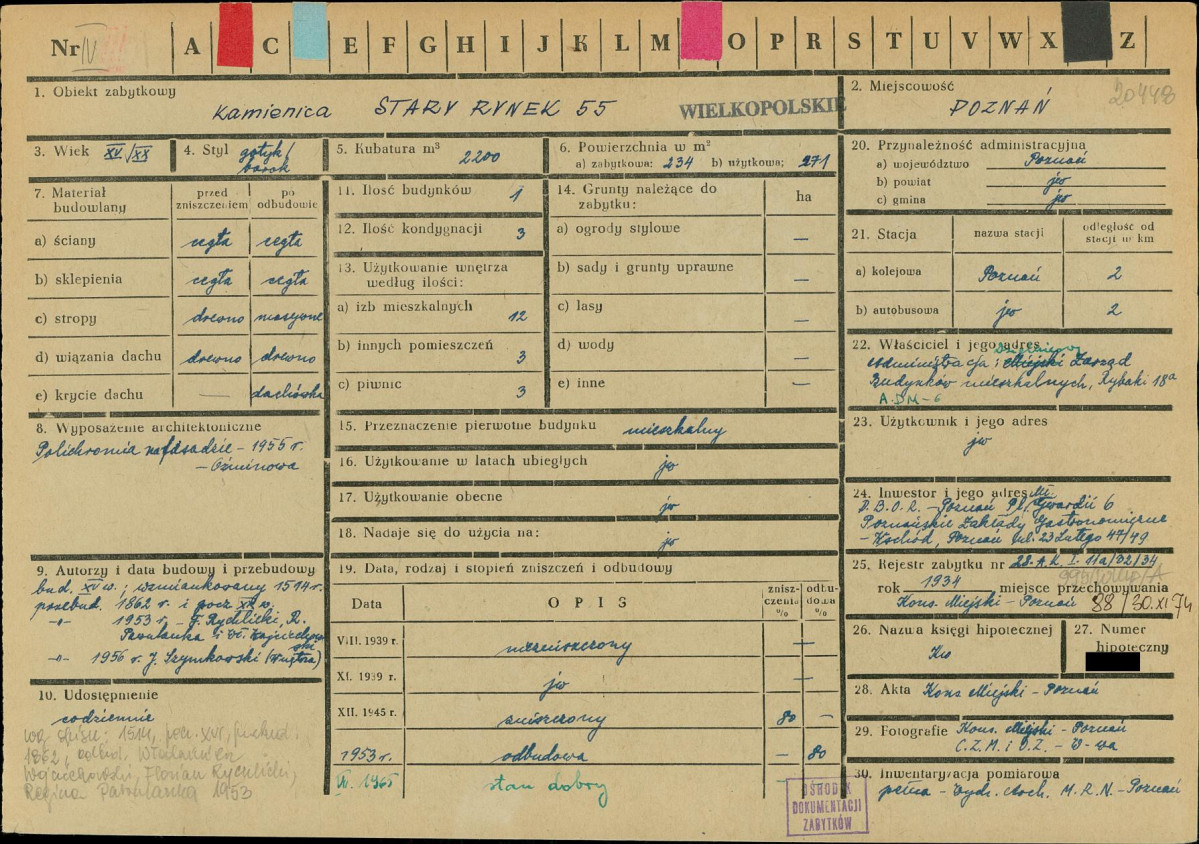 Nr IV A C E F G H I J K L M O P R S T U V W X Z
1. Obiekt zabytkowy
Kamienica STARY RYNEK 55
WIELKOPOLSKIE
2. Miejscowość
20448
POZNAŃ
3. Wiek XV/XX
4. Styl gotyk/
barok
5. Kubatura m³ 2200
6. Powierzchnia w m²
a) zabytkowa: 234 b) użytkowa: 271
7. Materiał budowlany
przed zniszczeniem
po odbudowie
a) ściany cegła cegła
b) sklepienia cegła cegła
c) stropy drewno masywne
d) wiązania dachu drewno drewno
e) krycie dachu — dachówka
8. Wyposażenie architektoniczne
Polichromia na fasadzie - 1955 r.
9. Autorzy i data budowy i przebudowy
bud. XV w.; wzmiankowany 1514 r.
przebud. 1862 r. i pocz. XX w.
-"- 1953 r. - F. Rychlicki, R.
Pawulanka i Wł. Wojciechowski
-"- 1956 r. J. Szymkowski (wnętrza)
10. Udostępnienie
codziennie
1862, odbud. Włodzimierz
Wojciechowski, Florian Rychlicki,
Regina Pawulanka 1953
11. Ilość budynków 1
12. Ilość kondygnacji 3
13. Użytkowanie wnętrza
według ilości:
a) izb mieszkalnych 12
b) innych pomieszczeń 3
c) piwnic 3
14. Grunty należące do
zabytku:
ha
a) ogrody stylowe —
b) sady i grunty uprawne —
c) lasy —
d) wody —
e) inne —
15. Przeznaczenie pierwotne budynku mieszkalny
16. Użytkowanie w latach ubiegłych jw
17. Użytkowanie obecne jw
18. Nadaje się do użycia na: jw
19. Data, rodzaj i stopień zniszczeń i odbudowy
Data OPIS zniszczenia % odbudowa %
VIII. 1939 r. niezniszczony — —
XI. 1939 r. jw —
XII. 1945 r. zniszczony 80 —
1953 r. odbudowa — 80
IV. 1965 stan dobry —
OŚRODEK
DOKUMENTACJI
ZABYTKÓW
20. Przynależność administracyjna
a) województwo Poznań
b) powiat jw
c) gmina jw
21. Stacja nazwa stacji odległość od
stacji w km
a) kolejowa Poznań 2
b) autobusowa jw 2
22. Właściciel i jego adres
administracja: Miejski Zarząd
Budynków mieszkalnych, Rybaki 18a
ADM-6
23. Użytkownik i jego adres
jw
24. Inwestor i jego adres
D.B.O.R. - Poznań Pl. Gwardii 6
Poznańskie Zakłady Gastronomiczne
- Wschód, Poznań ul. 23 Lutego 47/49
25. Rejestr zabytku nr 28.A.K.I.11a/32/34
rok 1934 miejsce przechowywania
Kons. Miejski - Poznań 88/30.XI.74
26. Nazwa księgi hipotecznej
27. Numer
hipoteczny
28. Akta Kons Miejski - Poznań
29. Fotografie Kons. Miejski - Poznań
C.Z.M.i O.Z. - W-wa
30. Inwentaryzacja pomiarowa
pełna - Wydz. Arch. M.R.N. - Poznań